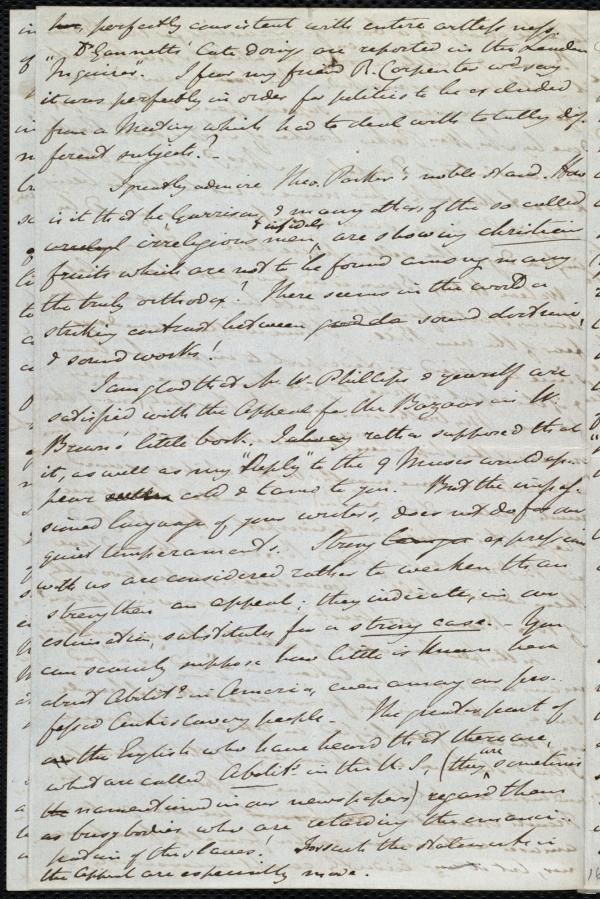 perfectly consistent with entire artlessness.
Dr Gannett's Cate doings are reported in the London
"Inquirer". I fear my friend R. Carpenter wd say
it was perfectly in order for politics to be excluded
from a Meeting which had to deal with totally dif-
ferent subjects!
I greatly admire Theo. Parker's noble stand. How
is it that he Garrison, & many others, of the so called
irreligious men, & infidels are showing christian
fruits which are not to be found among many
the truly orthodox! There seems in the world a
striking contrast between sound doctrine,
& sound works!
I am glad that Mr W. Phillips & yourself are
satisfied with the Appeal for the Bazaar in W.
Brown's little book. I always rather supposed that
it, as well as my "Reply" to the 9 Muses would ap-
pear cold & tame to you. But the impas-
sioned language of your writers, does not do for our
quiet temperaments. Strong expressions
with us are considered rather to weaken than
strengthen an appeal; they indicate, in our
estimation, substitutes for a strong case. - You
can scarcely suppose how little is known here
about Abolitn. in America, even among our pro-
fessed Antislavery people - The greater part of
the English who have heard that there are,
what are called Abolits. in the U.S, (they are sometimes
named in our newspapers) regard them
as busybodies who are retarding the emanci-
pation of the slaves! For such the statements in
the Appeal are especially made.